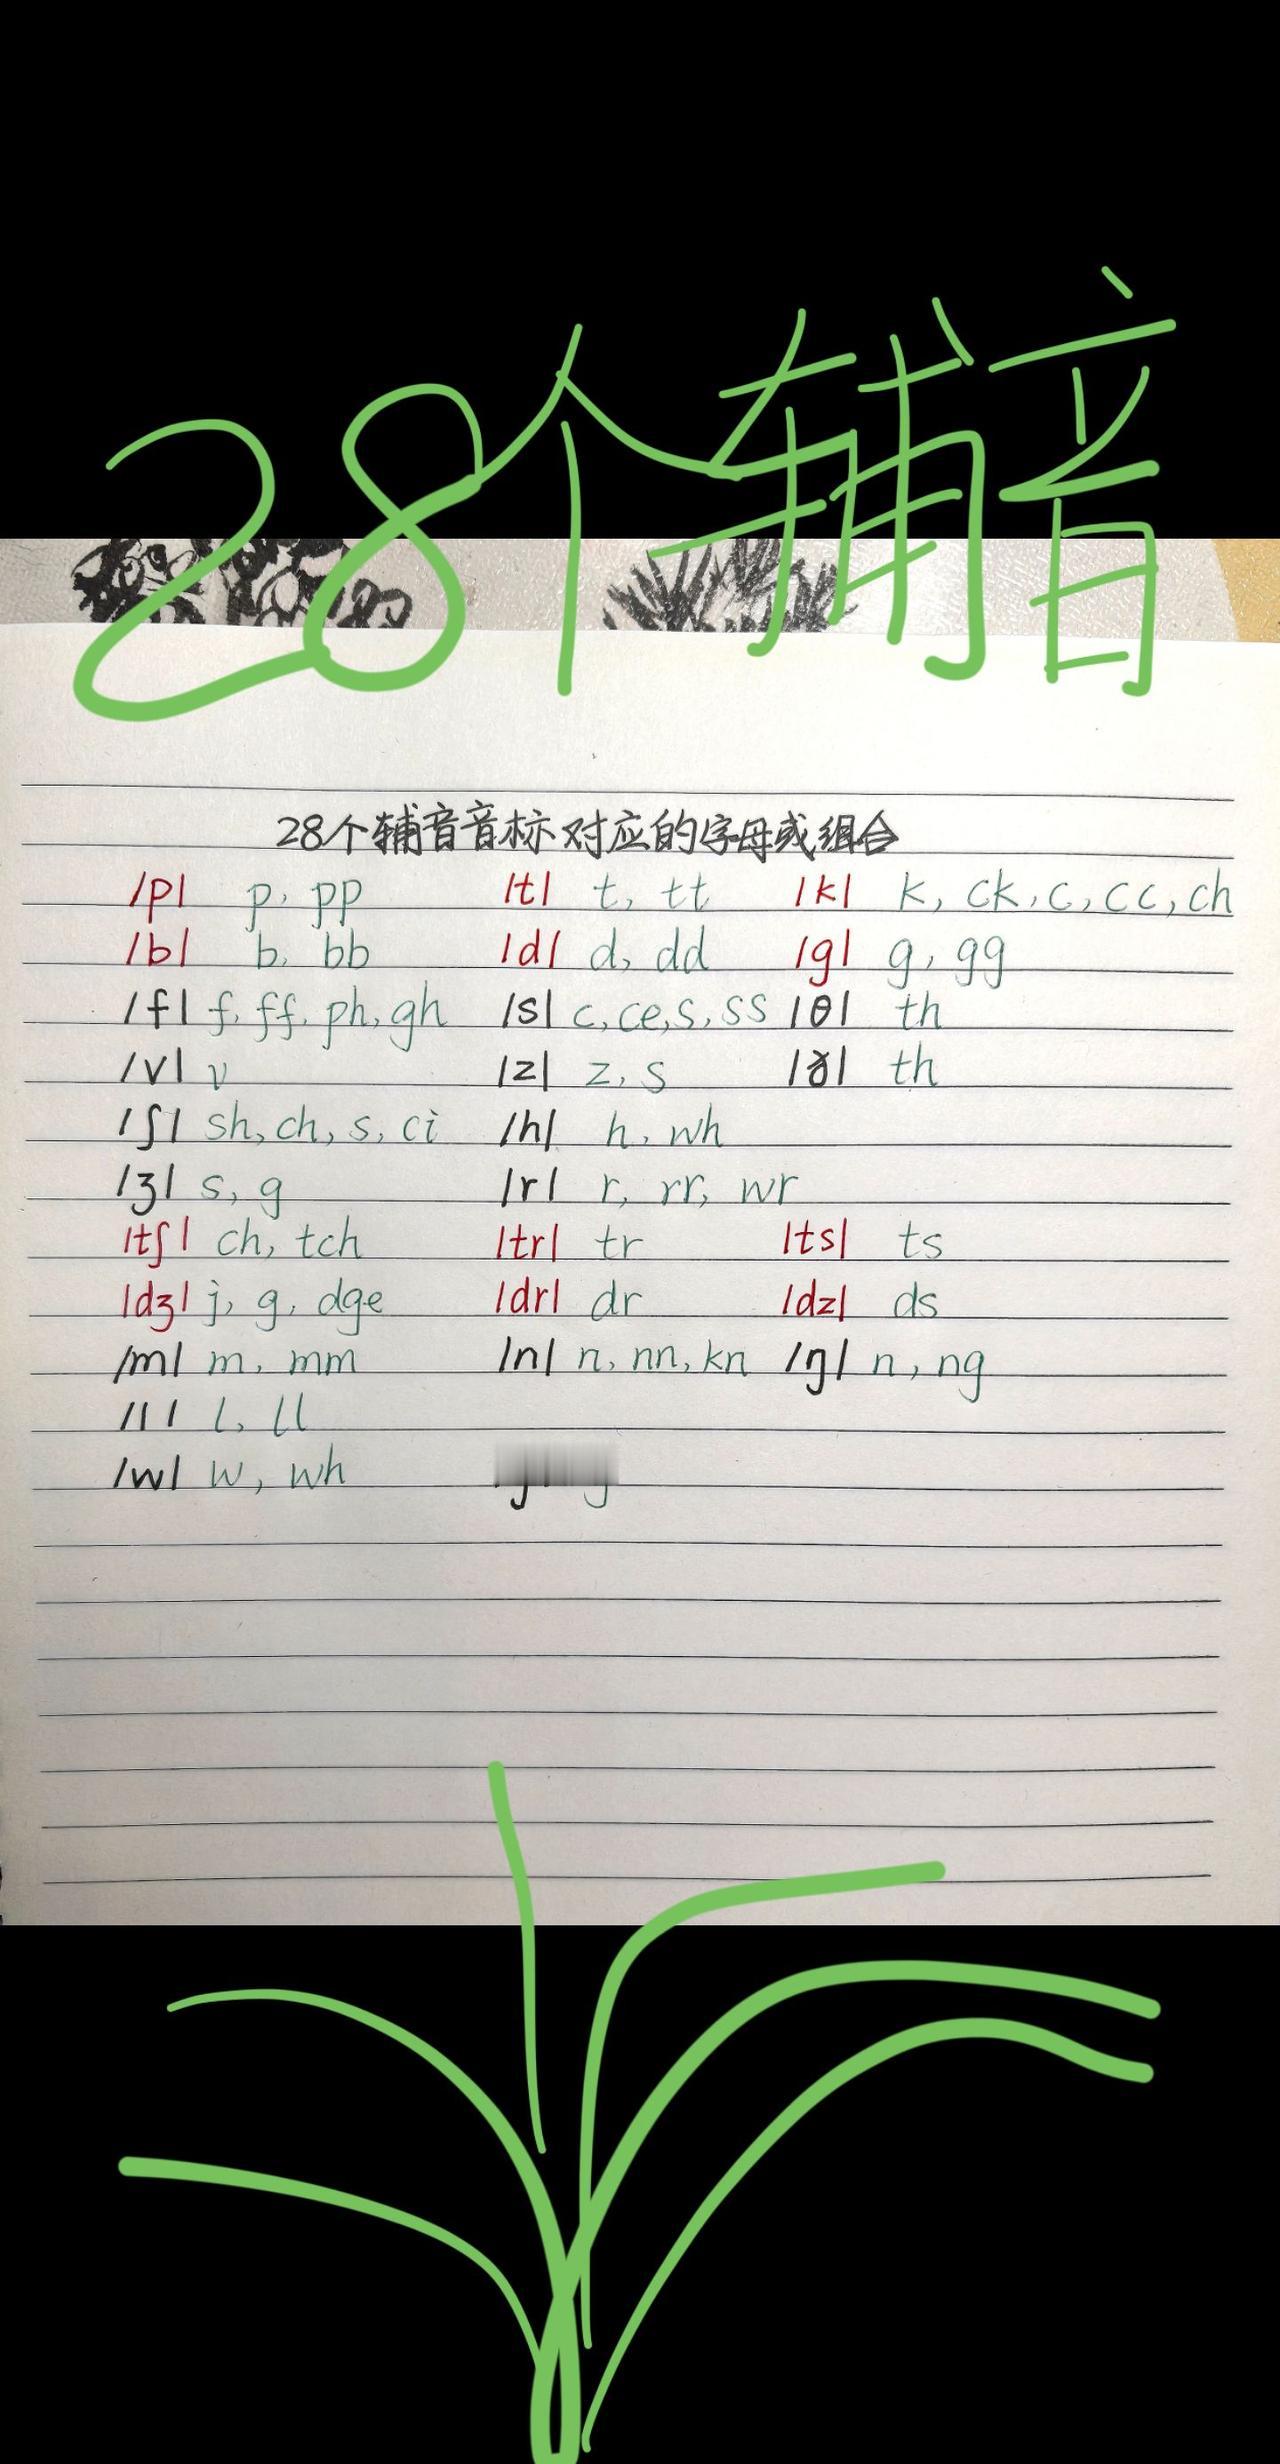 28个辅音
28个辅音音标对应的字母或组合
/p/ p, pp /t/ t, tt /k/ k, ck, c, cc, ch
/b/ b, bb /d/ d, dd /g/ g, gg
/f/ f, ff, ph, gh /s/ c, ce, s, ss /θ/ th
/v/ v /z/ z, s /ð/ th
/ʃ/ sh, ch, s, ci /h/ h, wh
/ʒ/ s, g /r/ r, rr, wr
/tʃ/ ch, tch /tr/ tr /ts/ ts
/dʒ/ j, g, dge /dr/ dr /dz/ ds
/m/ m, mm /n/ n, nn, kn /ŋ/ n, ng
/l/ l, ll
/w/ w, wh